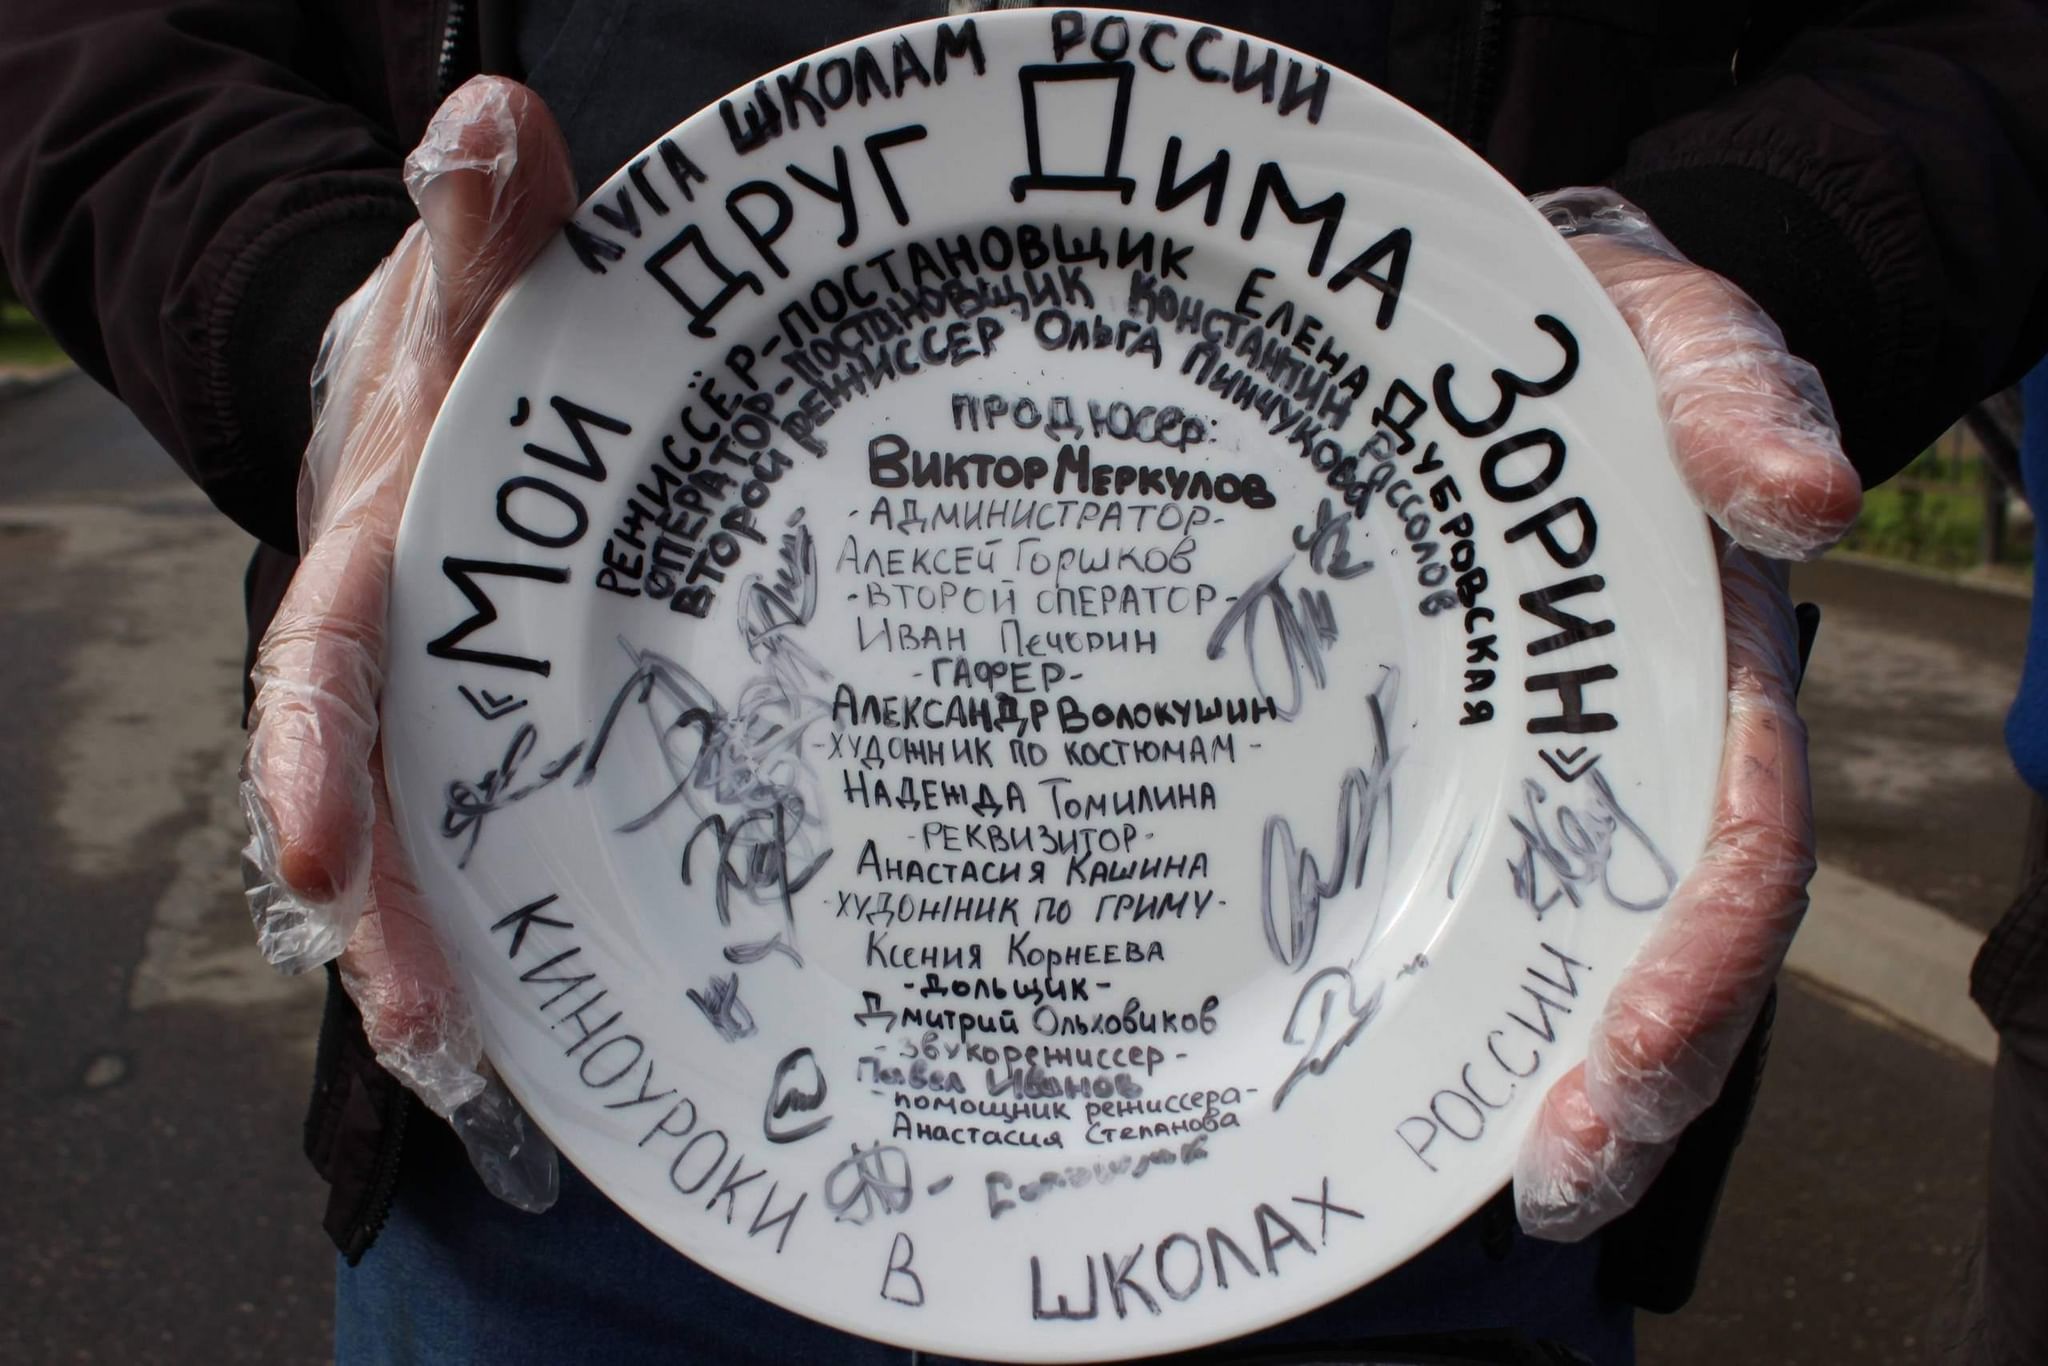 ЛУГА ШКОЛАМ РОССИИ
«МОЙ ДРУГ ДИМА ЗОРИН»
РЕЖИССЁР-ПОСТАНОВЩИК ЕЛЕНА ДУБРОВСКАЯ
ОПЕРАТОР-ПОСТАНОВЩИК КОНСТАНТИН РАССОЛОВ
ВТОРОЙ РЕЖИССЕР ОЛЬГА ПИНЧУКОВА
ПРОДЮСЕР:
ВИКТОР МЕРКУЛОВ
-АДМИНИСТРАТОР-
АЛЕКСЕЙ ГОРШКОВ
-ВТОРОЙ ОПЕРАТОР-
ИВАН ПЕЧОРИН
-ГАФЕР-
АЛЕКСАНДР ВОЛОКУШИН
-ХУДОЖНИК ПО КОСТЮМАМ-
НАДЕЖДА ТОМИЛИНА
-РЕКВИЗИТОР-
АНАСТАСИЯ КАШИНА
-ХУДОЖНИК ПО ГРИМУ-
КСЕНИЯ КОРНЕЕВА
-ДОЛЬЩИК-
ДМИТРИЙ ОЛЬХОВИКОВ
-звукорежиссер-
Павел Иванов
-помощник режиссера-
Анастасия Степанова
КИНОУРОКИ В ШКОЛАХ РОССИИ